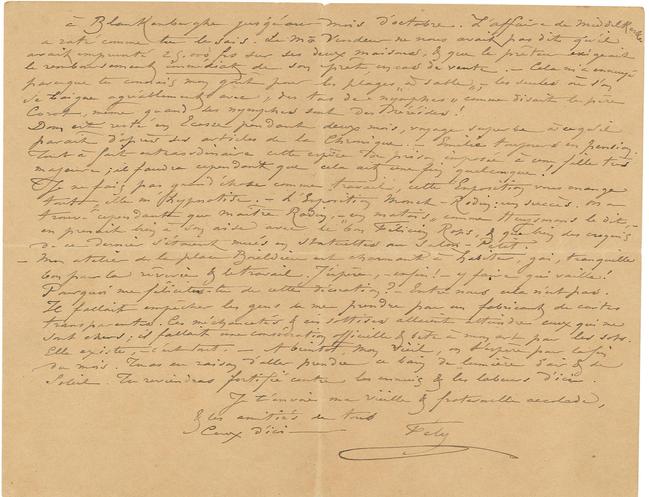 à Blankenberghe jusqu'au mois d'octobre. L'affaire de Middelkerke
a raté comme tu le sais. Le Mr Vendeur ne nous avait pas dit qu'il
avait emprunté 25,000 frs sur ses deux maisons, & que le prêteur exigeait
le remboursement immédiat de son prêt en cas de vente. — Cela m'a ennuyé
parceque tu connais mon goût pour les plages „à sable", les seules où l'on
se baigne agréablement avec „des tas de nymphes" comme disait le père
Corot, même quand les nymphes sont des Néréides!
Dom est resté en Ecosse pendant deux mois, voyage superbe à ce qu'il
parait d'après ses articles de la Chronique. — Emilie toujours en pension.
Tout à fait extraordinaire cette espèce de prison imposée à une fille très
majeure; il faudra cependant que cela ait une fin quelconque!
Je ne fais pas grand'chose comme travail, cette Exposition vous mange
tout, elle m'hypnotise. — L'Exposition Monet-Rodin: un succès. On a
trouvé cependant que maître Rodin, „en matois" comme Huysmans le dit,
en prenait bien à son aise avec le bon Félicien Rops, & que bien des croquis
de ce dernier s'étaient mués en statuettes au Salon Petit.
— Mon atelier de la place Boïeldieu est charmant à habiter, gai, tranquille
bon pour la rêverie & le travail, J'espère, — enfin! — y faire qui vaille!
Pourquoi me félicites-tu de cette décoration? — Entre nous cela n'est pas.
Il fallait empêcher les gens de me prendre pour un fabricant de cartes
transparentes. Ces méchancetés & ces sottises allaient atteindre ceux qui me
sont chers; il fallait une considération officielle & bête à mon art par les sots.
Elle existe, — c'est tout. — A bientôt, mon vieil, on t'espère pour la fin
du mois. Tu as eu raison d'aller prendre ce bain de lumière d'air & de
Soleil. Tu reviendras fortifié contre les ennuis & les labeurs d'ici.
Je t'envoie ma vieille & fraternelle accolade,
& les amitiés de tous
Ceux d'ici — Fély